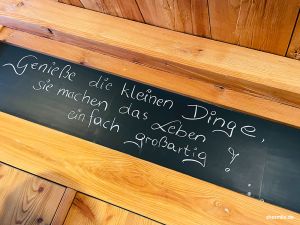 Genieße die kleinen Dinge,
sie machen das Leben
einfach großartig !